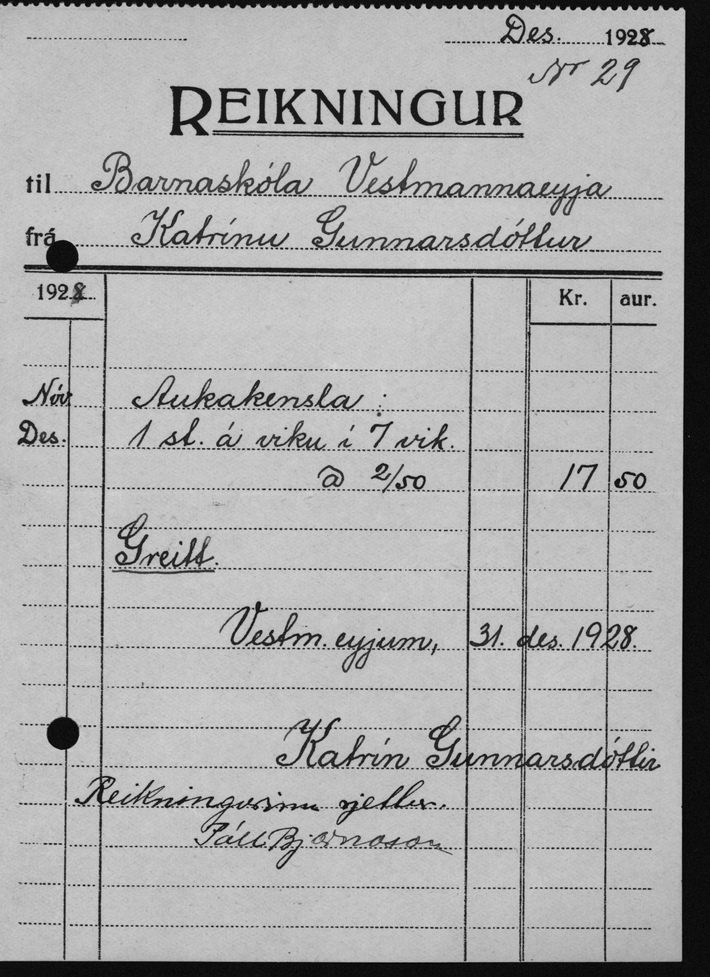 Des. 1928
Nr 29
REIKNINGUR
til Barnaskóla Vestmannaeyja
frá Katrínu Gunnarsdóttur
1928 Kr. aur.
Nóv Aukakensla :
Des. 1 st. á viku í 7 vik.
@ 2/50 17 50
Greitt.
Vestm. eyjum, 31. des. 1928.
Katrín Gunnarsdóttir
Reikningurinn rjettur.
Páll Bjarnason